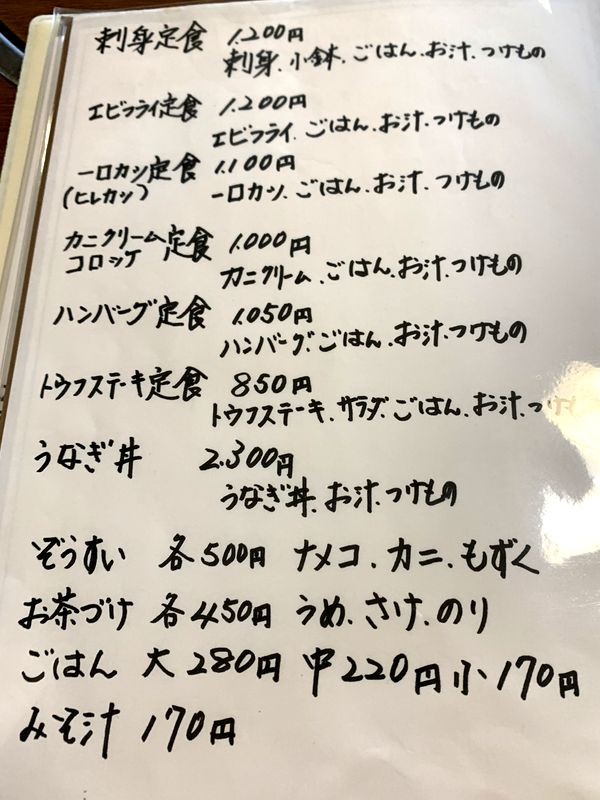 刺身定食 1.200円
刺身、小鉢、ごはん、お汁、つけもの
エビフライ定食 1.200円
エビフライ、ごはん、お汁、つけもの
一口カツ定食 1.100円
(ヒレカツ) 一口カツ、ごはん、お汁、つけもの
カニクリーム定食 1.000円
コロッケ
カニクリーム、ごはん、お汁、つけもの
ハンバーグ定食 1.050円
ハンバーグ、ごはん、お汁、つけもの
トウフステーキ定食 850円
トウフステーキ、サラダ、ごはん、お汁、つけ
うなぎ丼 2.300円
うなぎ丼、お汁、つけもの
ぞうすい 各500円 ナメコ、カニ、もずく
お茶づけ 各450円 うめ、さけ、のり
ごはん 大280円 中220円 小170円
みそ汁 170円